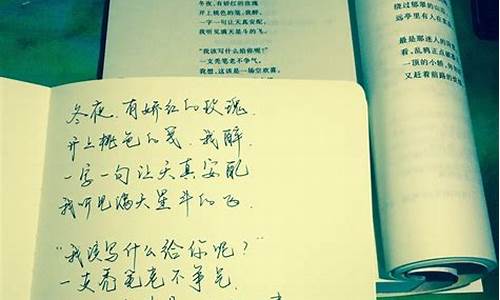 冬夜,有娇红的玫瑰
开上桃色的笺,我醉,
一字一句让天真安配,
我听见满天星斗的飞。
“我该写什么给你呢?”
一支秃笔老不争气,
我想,这该是一场空欢喜,
绕过郁翠的山
里有人在
最是那迷人的
看,乱鸦正点破
一顶的小轿,
又赶着前路的
冬夜,有娇红的玫瑰,
开上桃色的笺,我醉,
一字一句让天真安配
我听见满天星斗的飞.
“我该写什么给你呢?”
一支秃笔老不争气,